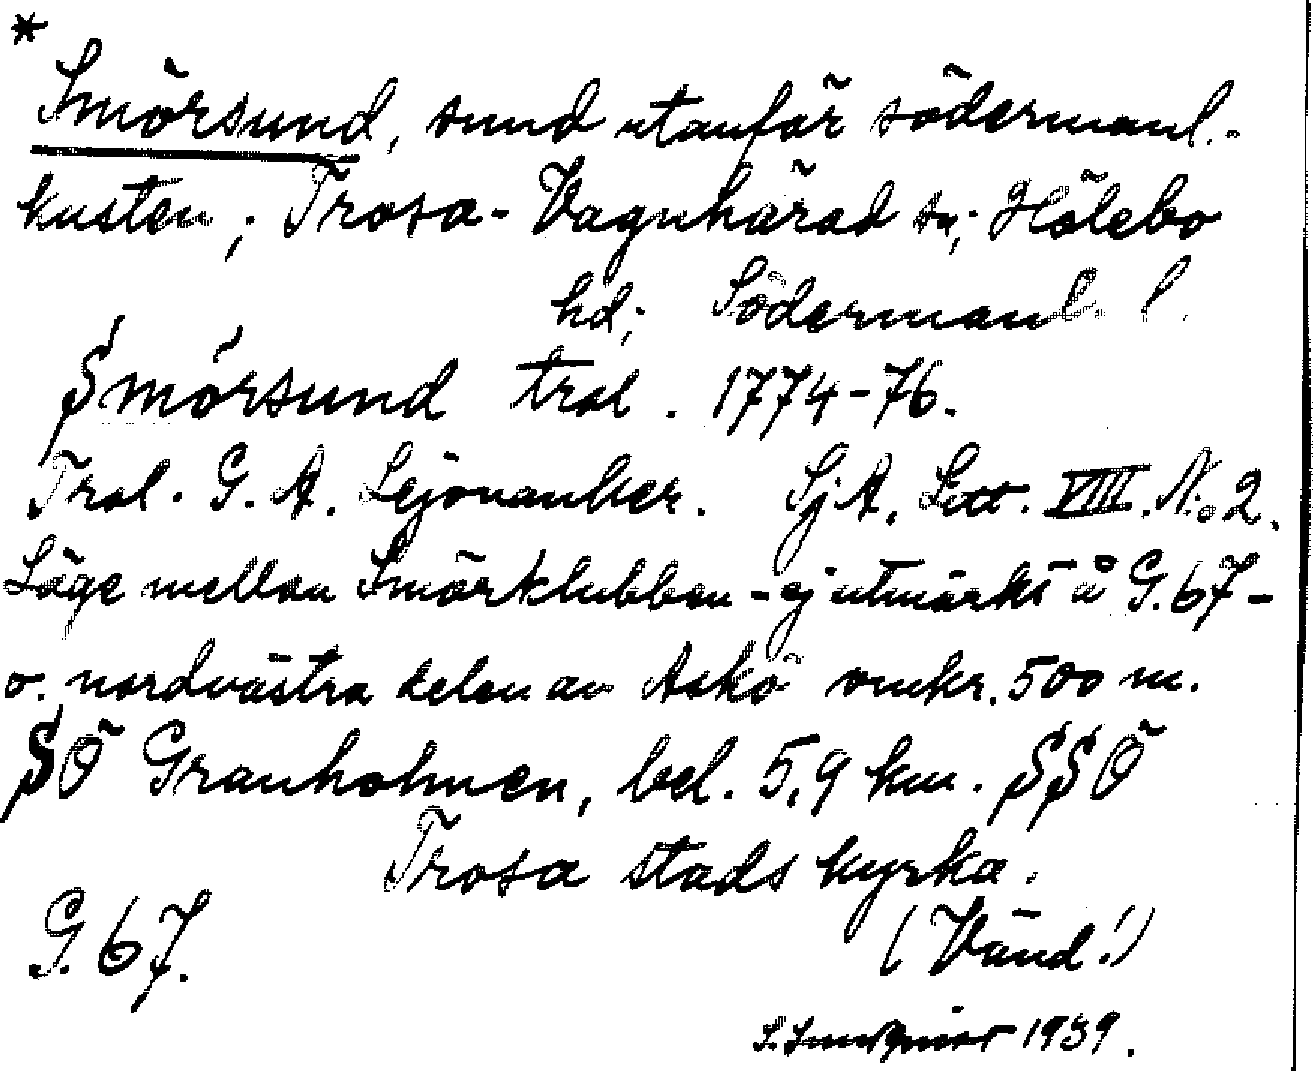 *
Smörsund, sund utanför södermanl.-
kusten; Trosa-Vagnhärad sn; Hölebo
hd; Södermanl. l.
Smörsund trol. 1774-76.
Trol. G. A. Lejonanker. SjA, Litt. VIII. No 2.
Läge mellan Smörklubben - ej utmärkt å G. 67 -
o. nordvästra delen av Askö omkr. 500 m.
SÖ Granholmen, bel. 5,9 km. SSÖ
Trosa stads kyrka.
G. 67.
(Vänd!)
1939.